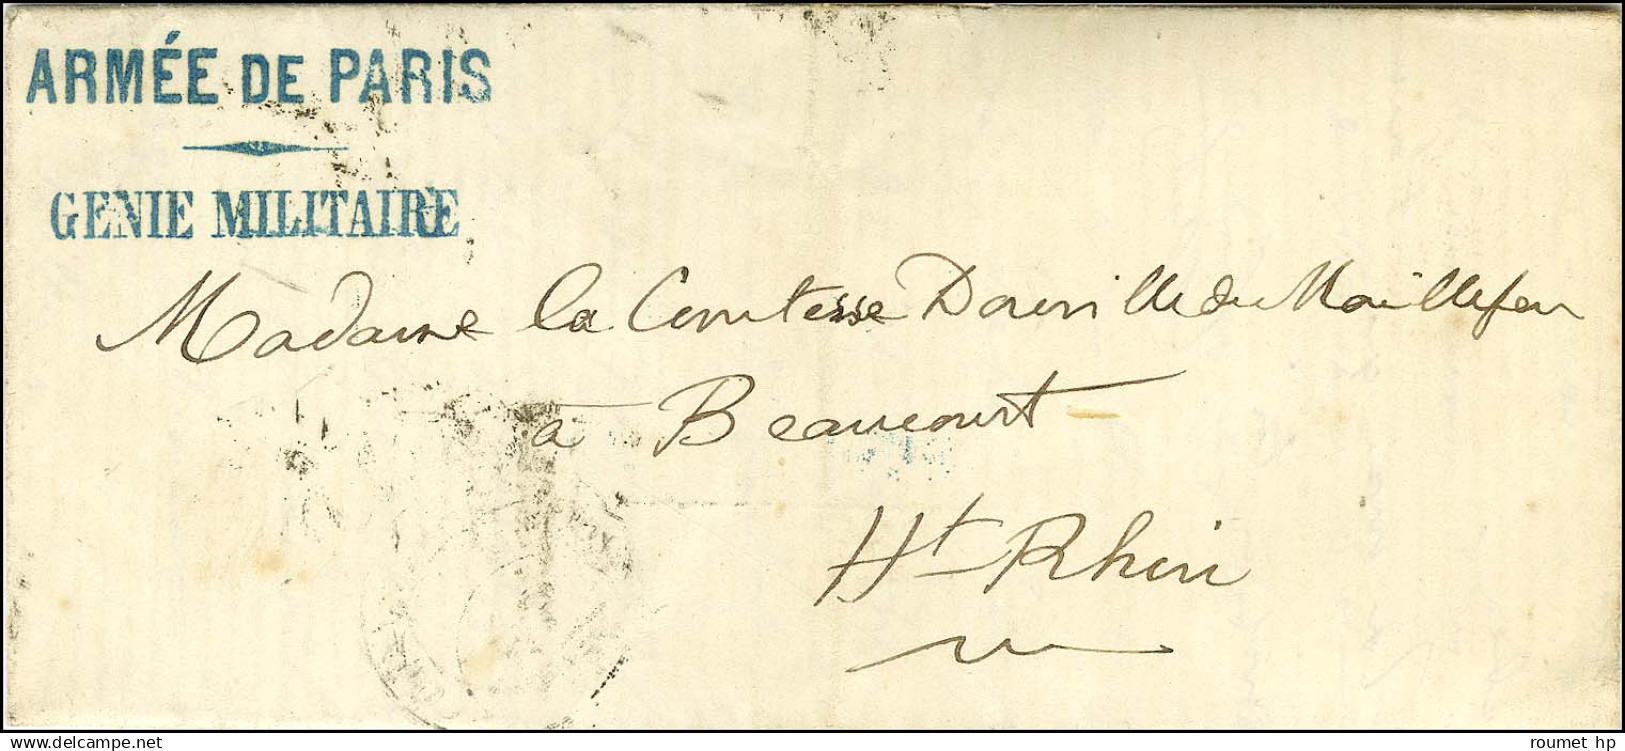 ARMÉE DE PARIS
GENIE MILITAIRE
Madame la Comtesse Douville du Maillefeu
à Beaucourt
Ht Rhin
roumet hp